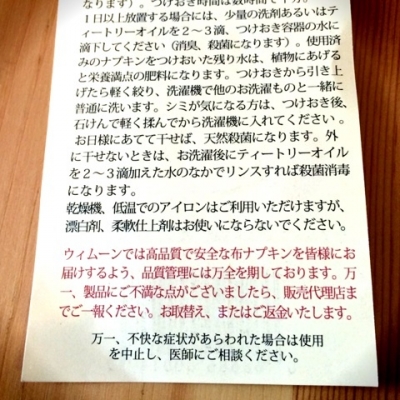 なります）。つけおき時間は数時間で十分。
１日以上放置する場合には、少量の洗剤あるいはティ
ートリーオイルを２～３滴、つけおき容器の水に
滴下してください（消臭、殺菌になります）。使用済
みのナプキンをつけおいた残り水は、植物にあげる
と栄養満点の肥料になります。つけおきから引き上
げたら軽く絞り、洗濯機で他のお洗濯ものと一緒に
普通に洗います。シミが気になる方は、つけおき後、
石けんで軽く揉んでから洗濯機に入れてください。
お日様にあてて干せば、天然殺菌になります。外
に干せないときは、お洗濯後にティートリーオイル
を２～３滴加えた水のなかでリンスすれば殺菌消毒
になります。
乾燥機、低温でのアイロンはご利用いただけますが、
漂白剤、柔軟仕上剤はお使いにならないでください。
ウィムーンでは高品質で安全な布ナプキンを皆様にお
届けするよう、品質管理には万全を期しております。万
一、製品にご不満な点がございましたら、販売代理店ま
でご一報ください。お取替え、またはご返金いたします。
万一、不快な症状があらわれた場合は使用
を中止し、医師にご相談ください。